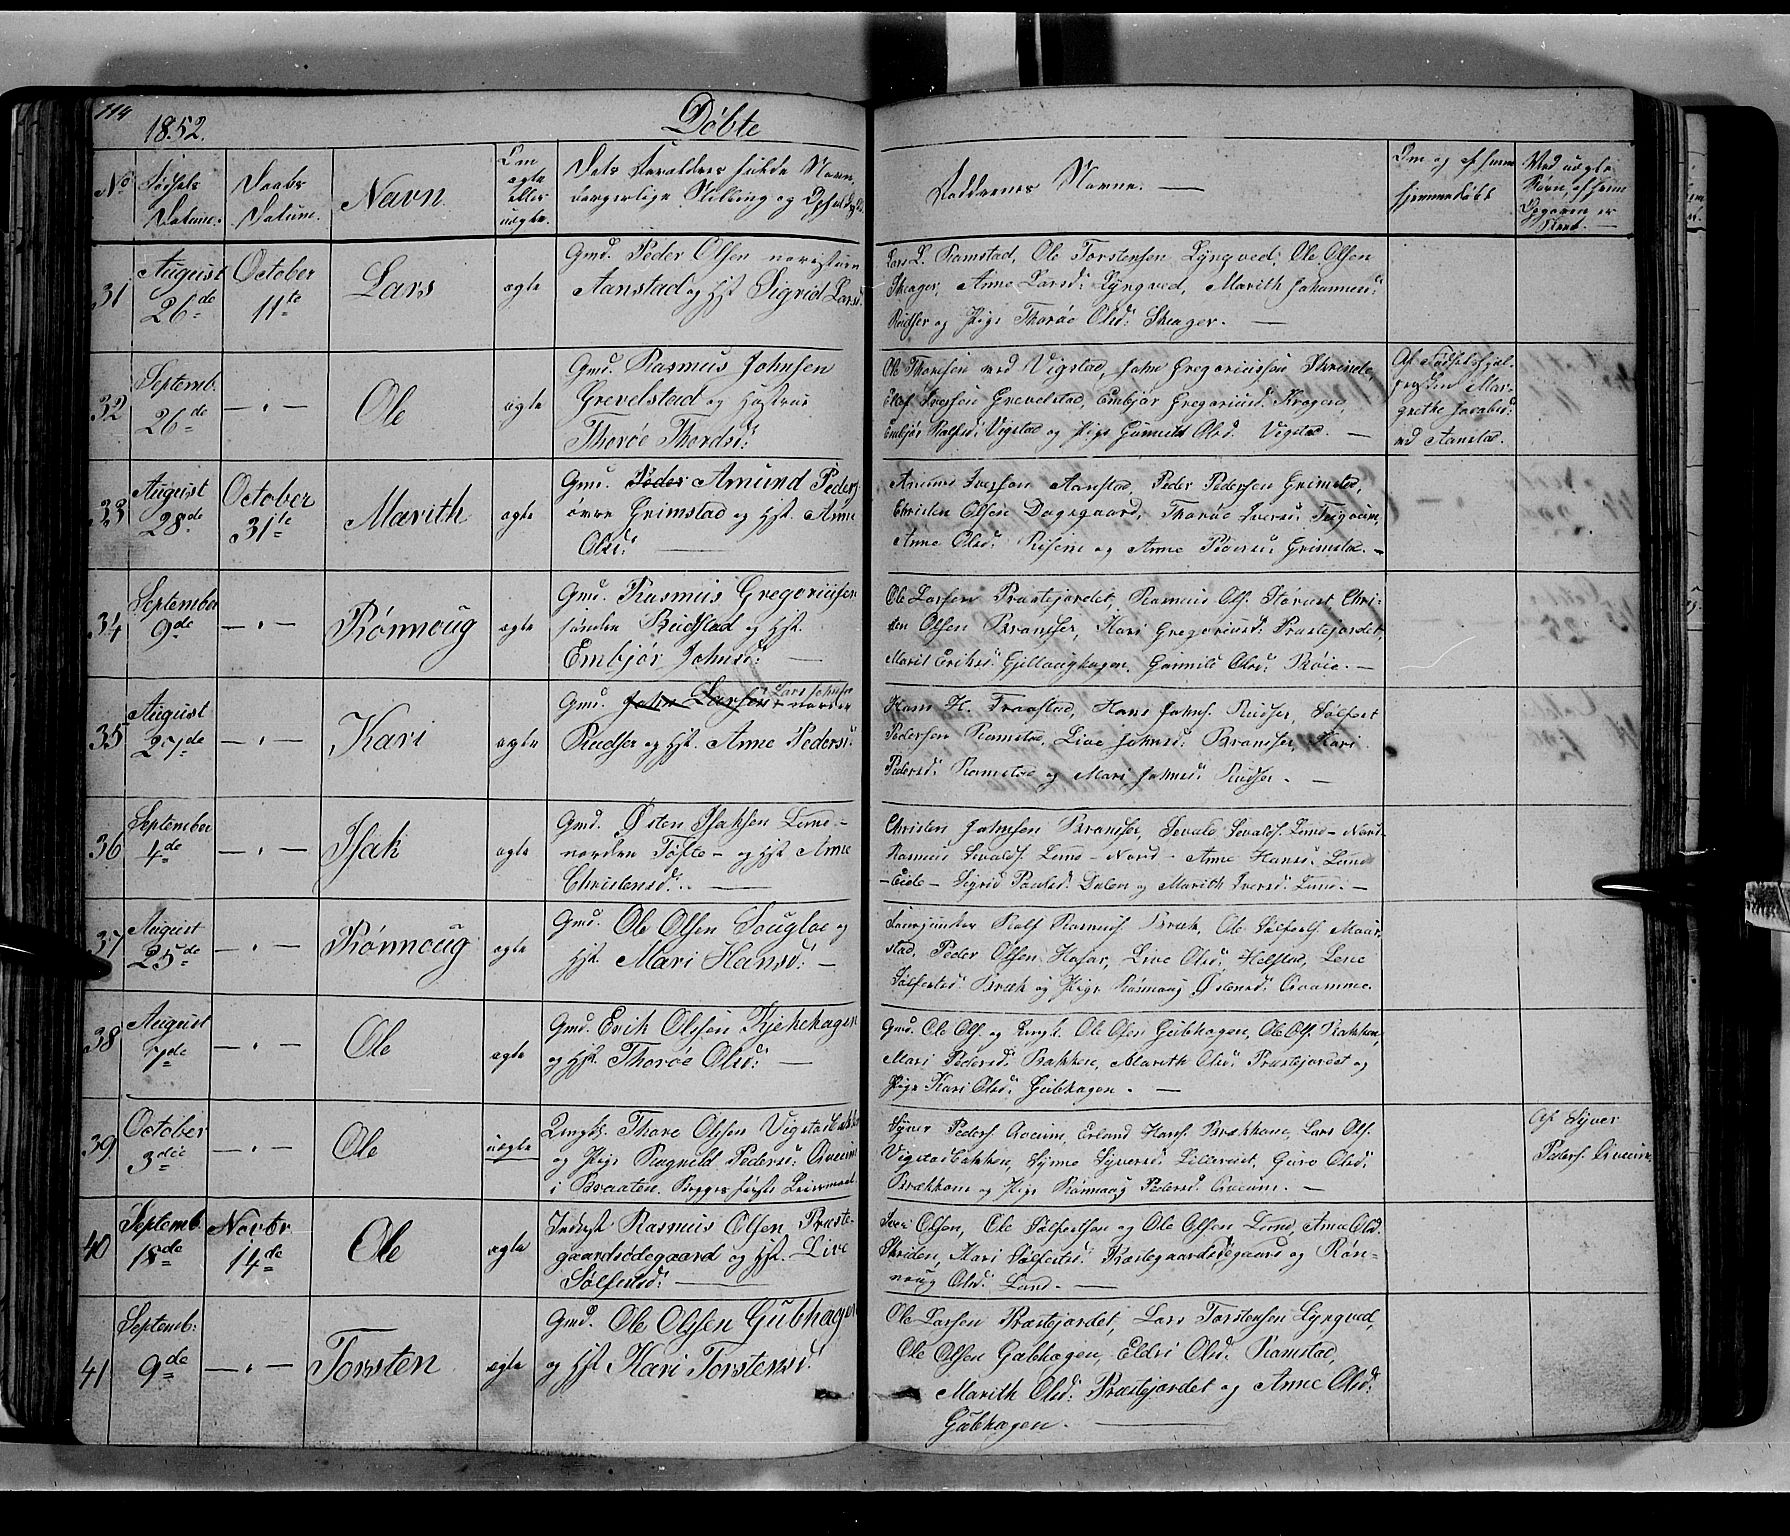 114
1852.
Døbte
No
Fødsels
Datum.
Daabs
Datum.
Navn
Om
ægte
eller
uægte.
Dets Forældres fulde Navn,
borgerlige Stilling og
Faddernes Navne. —
Om og af hvem
hjemmedøbt
Ved uægte
Børn, af hvem
Opgaven er
skeet. —
31
August
26de
October
11te
Lars
ægte
Gmd. Peder Olsen
Aanstad og Hst. Sigrid Larsd:
Lars L. Ramstad, Ole Torstensen Lyngved, Ole Olsen
Skeager, Anne Larsd: Lyngved, Marith Johannesd:
Rudser og Pige Thorøe Olsd: Skeager. —
32
Septemb.
26de
— „ —
Ole
ægte
Gmd. Rasmus Johnsen
Grevelstad og Hustrue
Thorøe Thordsd:
Ole Thoresen ved Vigstad, John Gregoriussen Skrinde,
Iversen Grevelstad, Embjør Gregoriusd. Kragen,
Embjør Rolfsd: Vigstad og Pige Gunnild Olsd. Vigstad. —
Af Fødselshjel-
Mar-
grethe Jacobsd:
ved Aanstad.
33
August
28de
October
31te
Marith
ægte
Gmd. Peder Amund Peders.
øvre Grimstad og Hst. Anne
Olsd: —
Amund Iversen Aanstad, Peder Pedersen Grimstad,
Christen Olsen Dagsgaard, Thorøe Iversd:
Anne Olsd: Risem og Anne Pedersd: Grimstad. —
34
September
9de
— „ —
Rønnoug
ægte
Gmd. Rasmus Gregoriusen
søndre Rudstad og Hst.
Embjør Johnsd: —
Ole Larsen Præstejordet, Rasmus Ols. Chri-
sten Olsen Brandser, Kari Gregoriusd: Præstejordet,
Marit Eriksd: Gjillaaghagen, Gunnild Olsd: —
35
August
27de
— „ —
Kari
ægte
Gmd. John Larsen Lars Johnsen nordre
Rudser og Hst. Anne Pedersd:
Hans H. Fraastad, Hans Johns. Rudser, Sølfest
Pedersen Ramstad, Live Johnsd: Brandser, Kari
Pedersd: Ramstad og Mari Johnsd: Rudser. —
36
September
4de
— „ —
Isak
ægte
Gmd. Østen Isaksen Lund-
norden Tofte — og Hst. Anne
Christensd: —
Christen Johnsen Brandser, Sevald Sevalds. Lund-Nord-
Rasmus Sevalds. Lund-Nord- Anne Hansd: Lund
— Sigrid Paulsd: Dalen og Marith Iversd: Lund. —
37
August
25de
— „ —
Rønnoug
ægte
Gmd. Ole Olsen Sougloe og
Hst. Mari Hansd: —
Rolf Rasmus. Bræk, Ole Sølfests.
stad, Peder Olsen Hosar, Live Olsd: Helstad, Lene
Sølfestsd: Bræk og Pige Rønnaug Østensd: Qvamme.
38
August
7de
— „ —
Ole
ægte
Gmd. Erik Olsen Kjekehagen
og Hst. Thorøe Olsd: —
Gmd. Ole Ols. og Ungk. Ole Olsen Gubhagen, Ole Ols. Bakken,
Mari Pedersd: Bakken, Marith Olsd: Præstejordet og
Pige Kari Olsd: Gubhagen. —
39
October
3die
— „ —
Ole
uægte
Ungk. Thore Olsen Vigstadbakken
og Pige Ragnild Pedersd: Qveum
i Braaten. Begges første Leiermaal.
Syver Peders. Qveum, Erland Hans. Brækkene, Lars Ols.
Vigstadbakken, Synne Syversd: Guro Olsd:
Brækkene og Pige Rønnaug Pedersd: Qveum. —
Af Syver
Peders. Qveum.
40
Septemb.
18de
Novbr
14de
Ole
ægte
Inderst Rasmus Olsen Præste-
gaardsødegaard og Hst. Live
Sølfestsd: —
Olsen, Ole Sølfestsen og Ole Olsen Lund, Anne Olsd.
Skriden, Mari Sølfestsd: Præstegaardsødegaard og Røn-
noug Olsd: Lund. —
41
Septemb:
9de
— „ —
Torsten
ægte
Gmd. Ole Olsen Gubhagen
og Hst. Kari Torstensd:
Ole Larsen Præstejordet, Lars Torstensen Lyngved,
Ole Olsen Gubhagen, Eldri Olsd: Ramstad,
Marith Olsd: Præstejordet og Anne Olsd:
Gubhagen. —